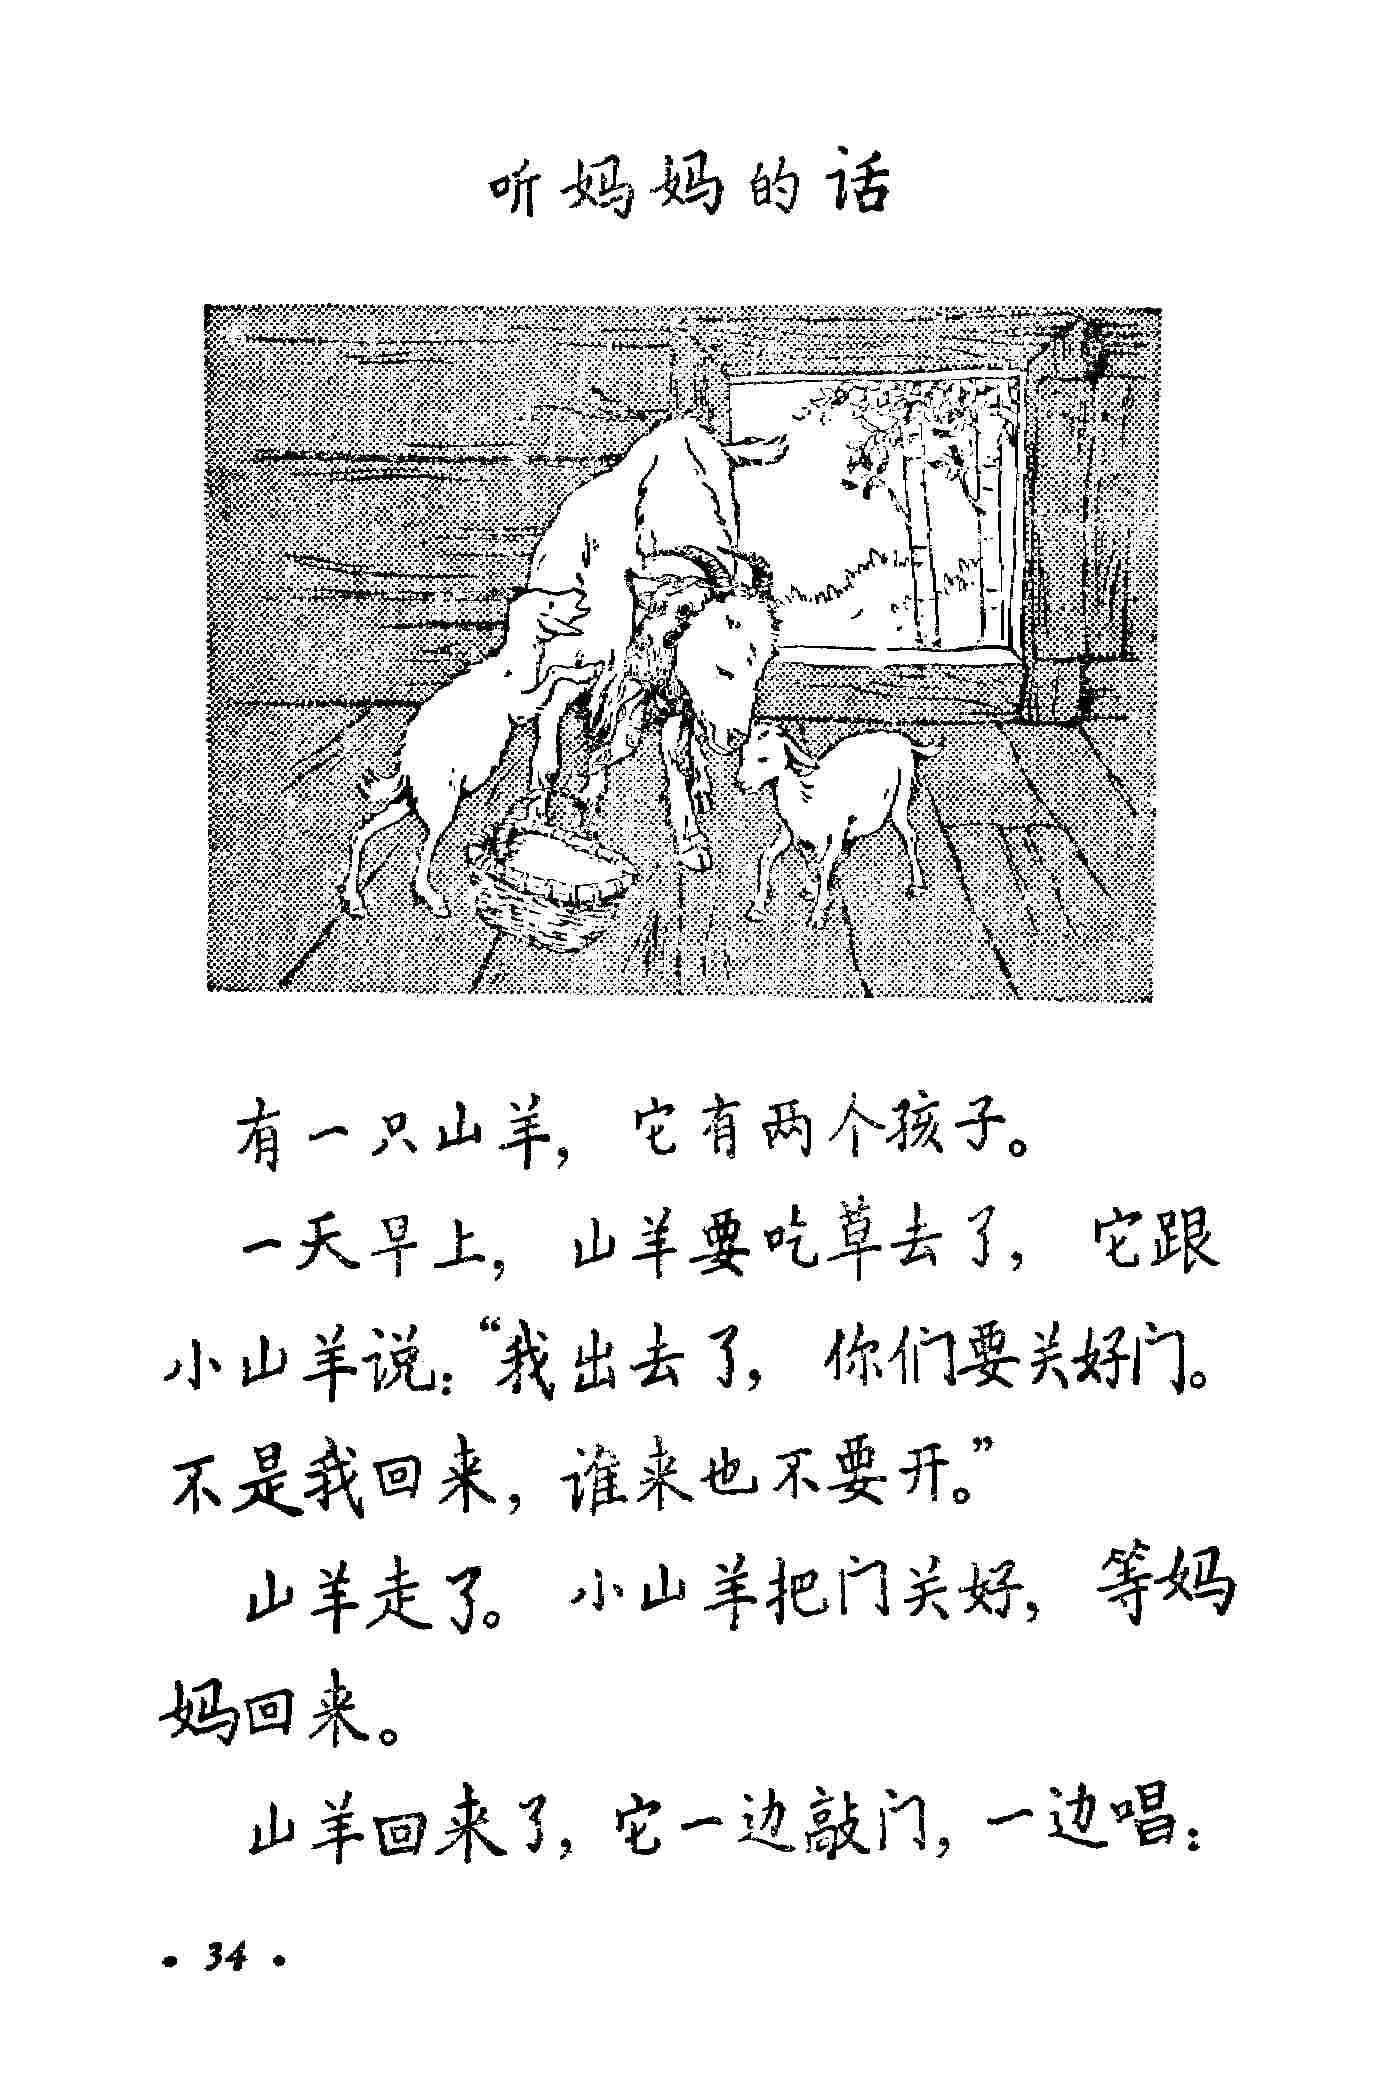 听妈妈的话
有一只山羊，它有两个孩子。
一天早上，山羊要吃草去了，它跟
小山羊说：“我出去了，你们要关好门。
不是我回来，谁来也不要开。”
山羊走了。小山羊把门关好，等妈
妈回来。
山羊回来了，它一边敲门，一边唱：
· 34 ·